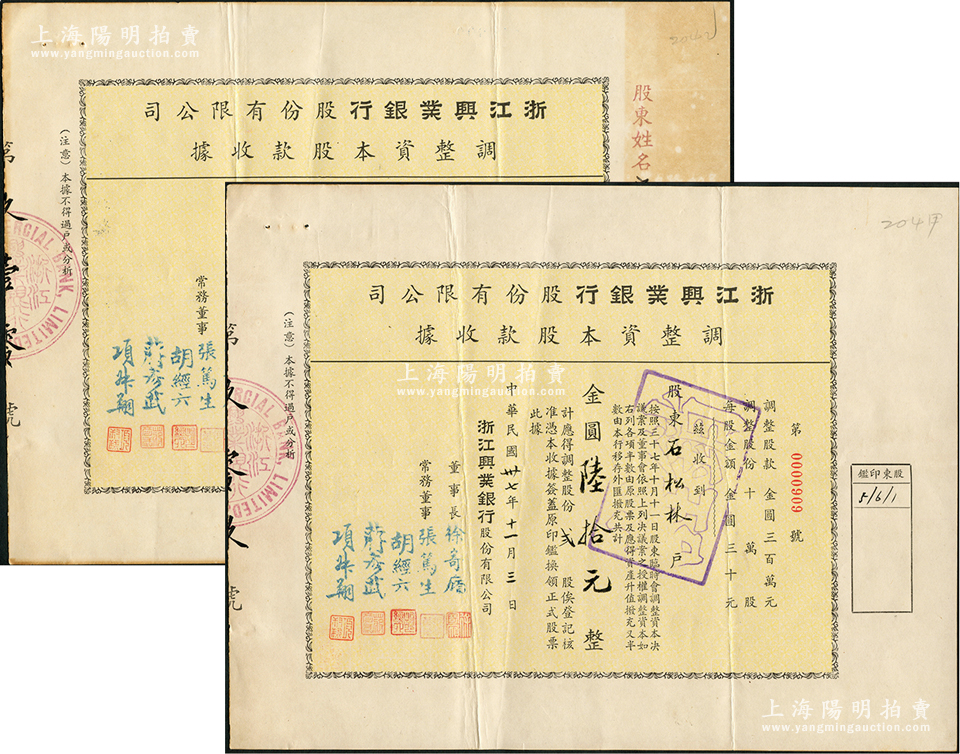 上海陽明拍賣
www.yangmingauction.com
2042
司公限有份股行銀業興江浙
據收款股本資整調
股東姓名
(注意)本據不得過戶或分析
常務董事
張篤生
胡經六
第玖壹零
號
COMMERCIAL BANK, LIMITED
204甲
司公限有份股行銀業興江浙
據收款股本資整調
第 0000909 號
調整股款 金圓三百萬元
調整股份 十萬股
每股金額 金圓三十元
股東石松林 戶
茲收到
按照三十七年十月十一日股東臨時會調整資本決
議案及董事會依照上列決議案之授權調整資本如
右列各項半數由原股票及應得資產升值撥充又半
數由本行移存外匯撥充共計
金圓陸拾元整
計應得調整股份 弍 股俟登記核
准憑本收據簽蓋原印鑑換領正式股票
此據
中華民國卅七年十一月三日
浙江興業銀行股份有限公司
董事長
徐寄廎
常務董事
張篤生
胡經六
(注意)本據不得過戶或分析
第玖零玖
號
COMMERCIAL BANK, LIMITED
鑑印東股
5/6/1
上海陽明拍賣
www.yangmingauction.com
上海陽明拍賣
www.yangmingauction.com